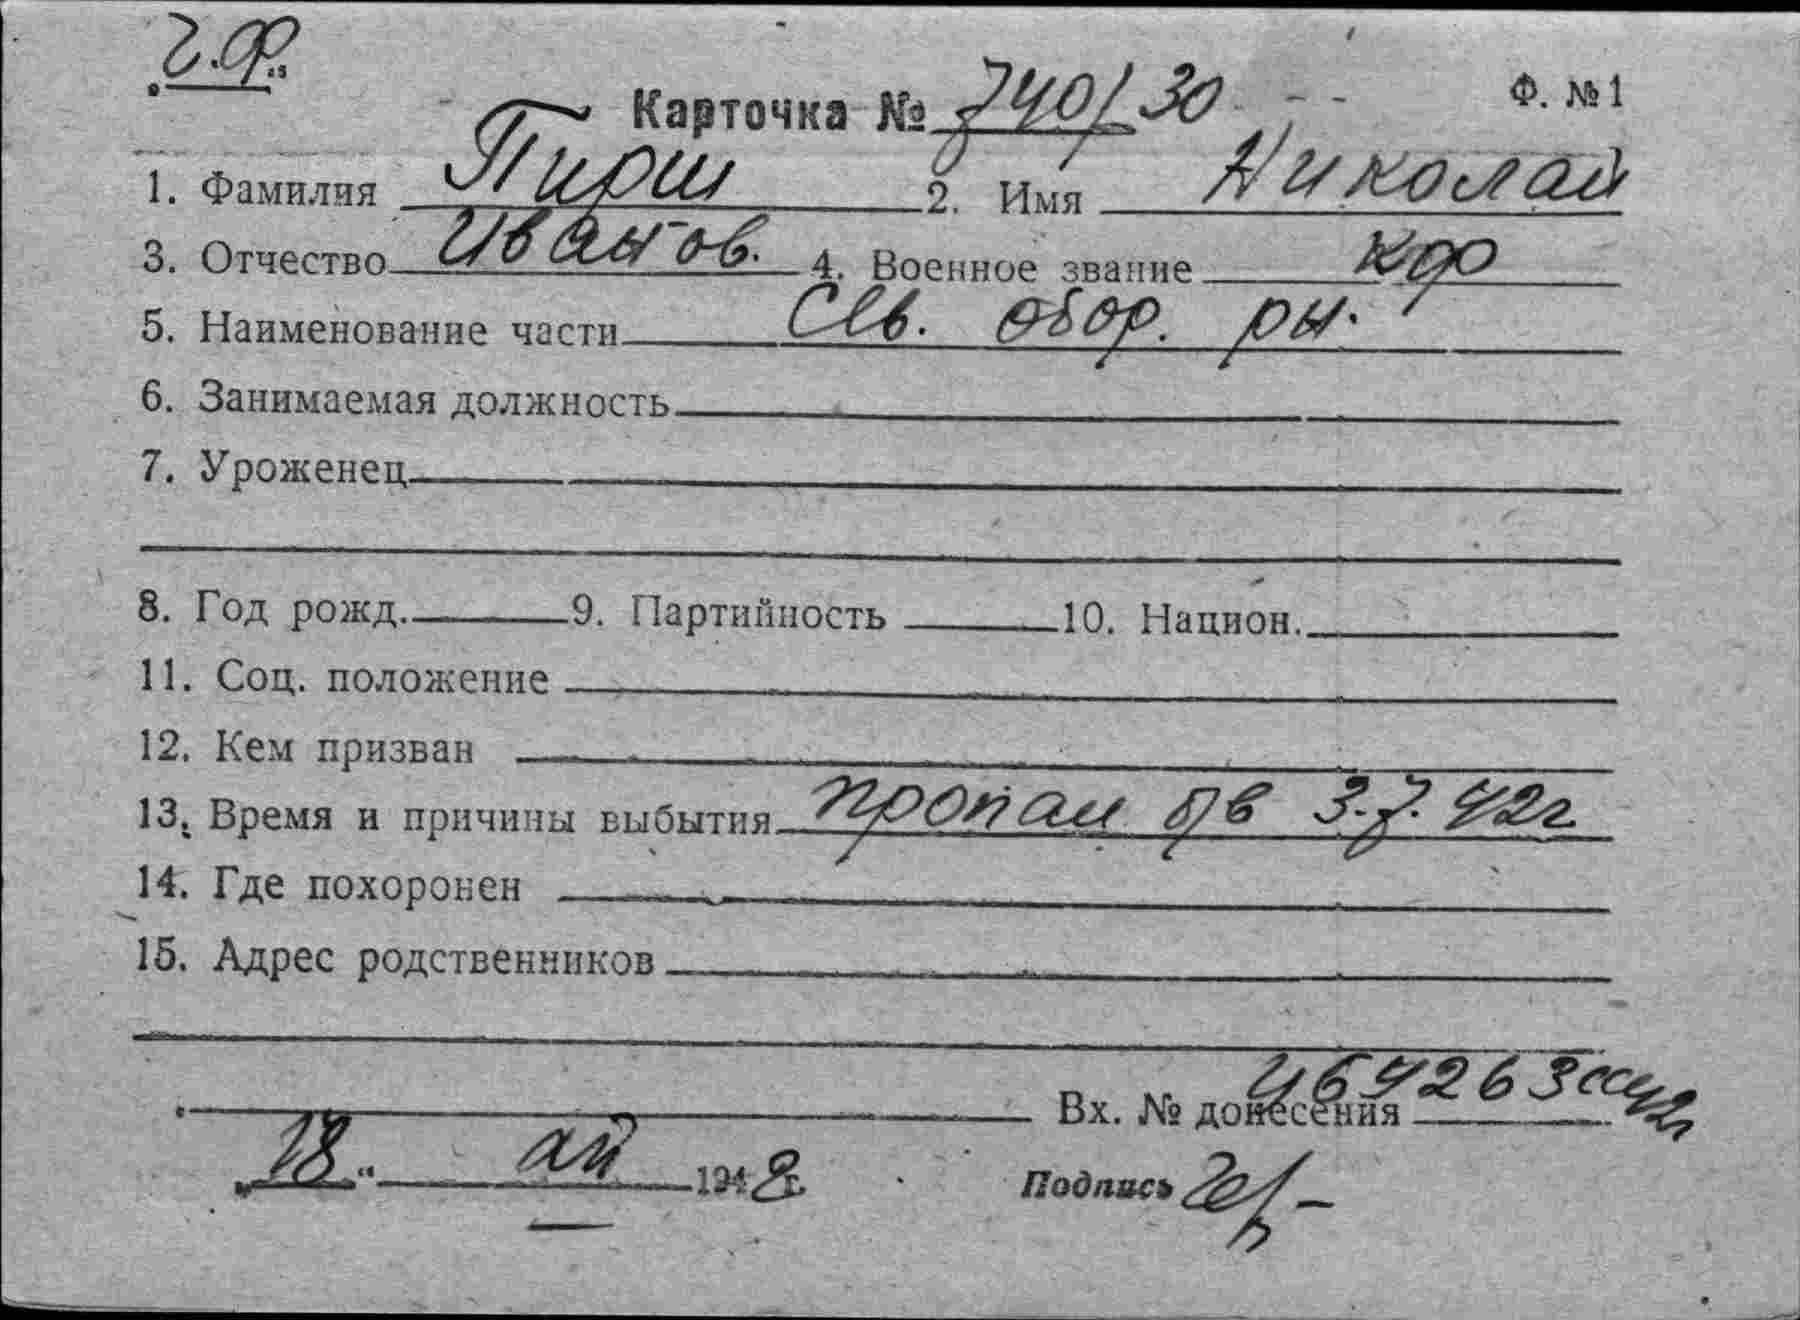 Ч.Ф.
Карточка № 740/30 Ф. №1
1. Фамилия Пирш 2. Имя Николай
3. Отчество Иванов. 4. Военное звание кф
5. Наименование части Сев. обор. рн.
6. Занимаемая должность
7. Уроженец
8. Год рожд. 9. Партийность 10. Национ.
11. Соц. положение
12. Кем призван
13. Время и причины выбытия пропал б/в 3.7.42г
14. Где похоронен
15. Адрес родственников
Вх. № донесения
18 " 1948г. Подпись